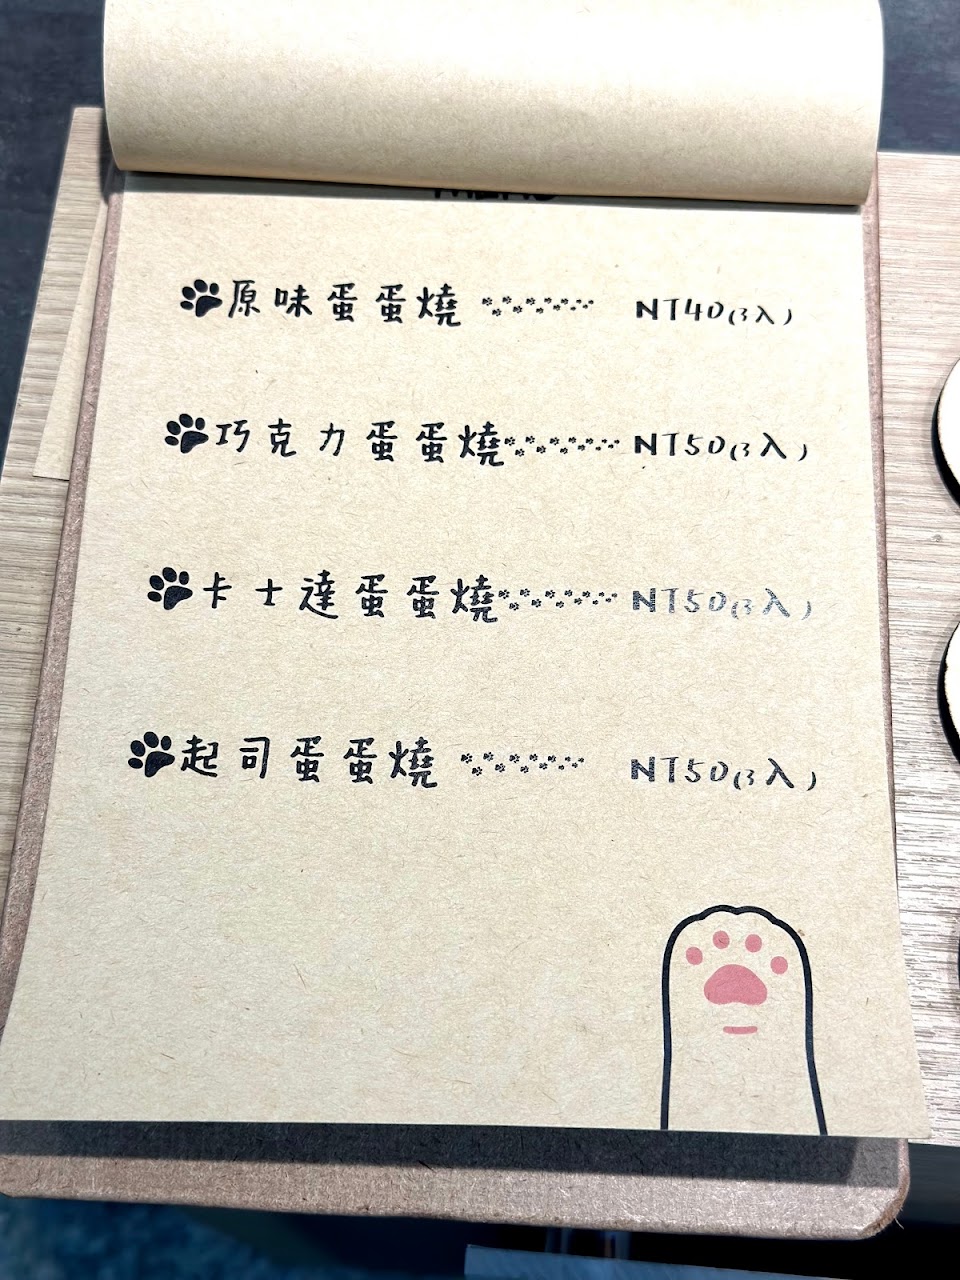 MENU
原味蛋蛋燒 NT40(3入)
巧克力蛋蛋燒 NT50(3入)
卡士達蛋蛋燒 NT50(3入)
起司蛋蛋燒 NT50(3入)